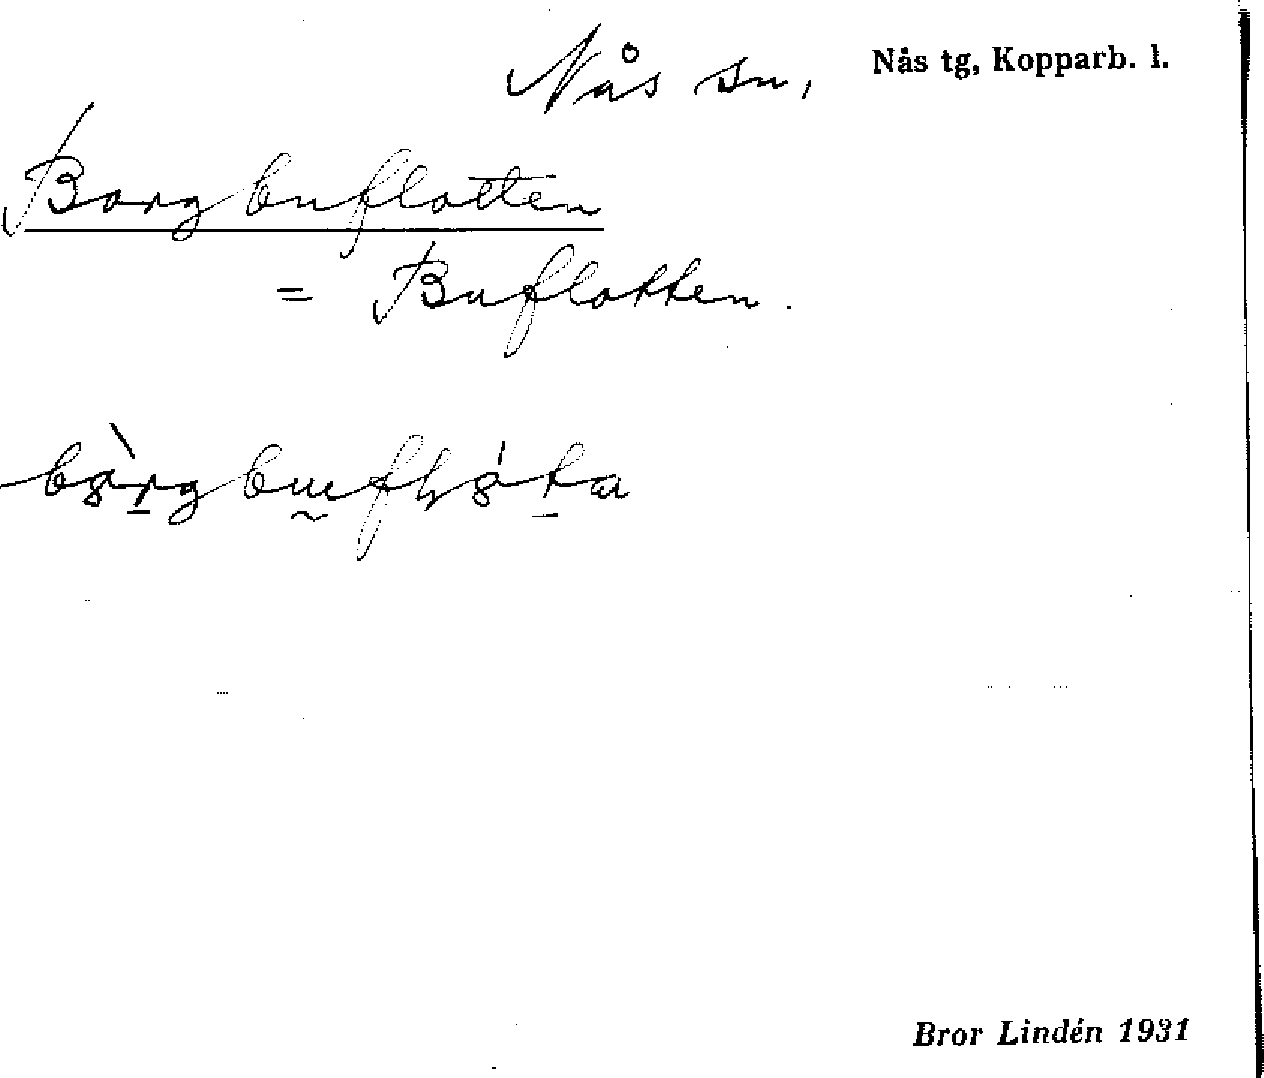 Nås sn, Nås tg, Kopparb. l.
Borgbuflotten
= Buflotten.
Bror Lindén 1931